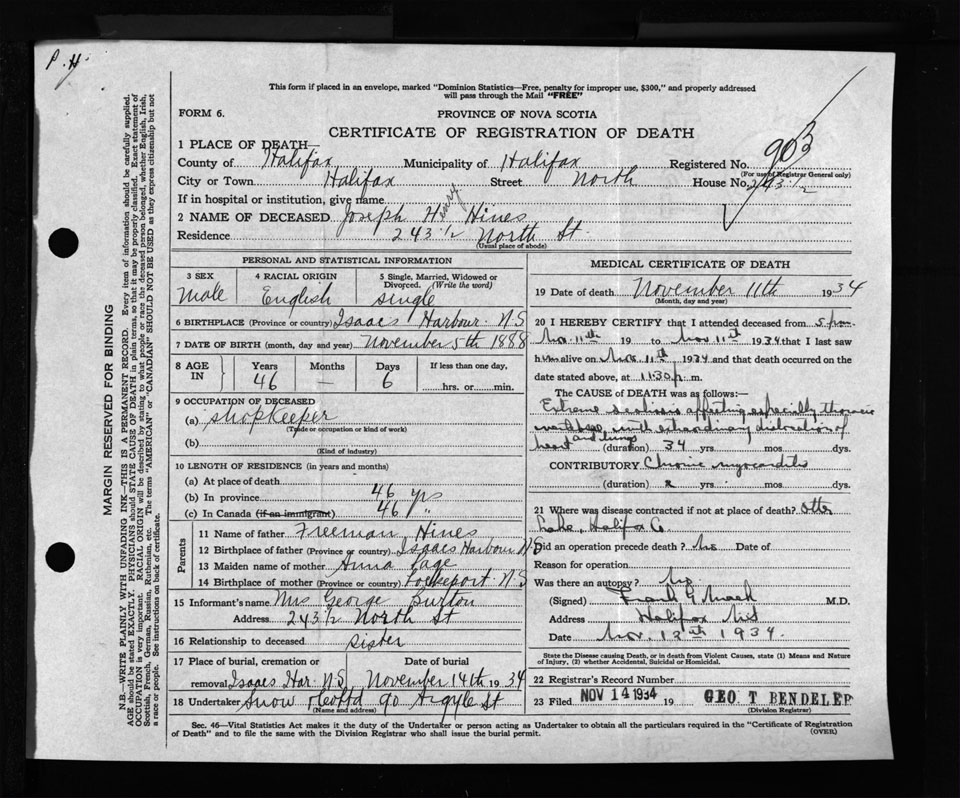 P. H.
This form if placed in an envelope, marked "Dominion Statistics—Free, penalty for improper use, $300," and properly addressed
will pass through the Mail "FREE"
FORM 6.
PROVINCE OF NOVA SCOTIA
CERTIFICATE OF REGISTRATION OF DEATH
1 PLACE OF DEATH—
County of Halifax Municipality of Halifax Registered No. 903
(For use of Registrar General only)
City or Town Halifax Street North House No. 243 1/2
If in hospital or institution, give name
2 NAME OF DECEASED Joseph Henry Hines
Residence 243 1/2 North St.
(Usual place of abode)
PERSONAL AND STATISTICAL INFORMATION
3 SEX
Male
4 RACIAL ORIGIN
English
5 Single, Married, Widowed or
Divorced. (Write the word)
single
6 BIRTHPLACE (Province or country) Isaacs Harbour. N.S
7 DATE OF BIRTH (month, day and year) November 5th 1888
8 AGE IN
Years Months Days If less than one day,
46 — 6 hrs. or min.
9 OCCUPATION OF DECEASED
(a) shopkeeper
(Trade or occupation or kind of work)
(b)
(Kind of industry)
10 LENGTH OF RESIDENCE (in years and months)
(a) At place of death
(b) In province 46 yrs
(c) In Canada (if an immigrant) 46 "
Parents
11 Name of father Freeman Hines
12 Birthplace of father (Province or country) Isaacs Harbour N.S
13 Maiden name of mother Anna Page
14 Birthplace of mother (Province or country) Lockeport N.S
15 Informant's name Mrs George Burton
Address 243 1/2 North St
16 Relationship to deceased sister
17 Place of burial, cremation or Date of burial
removal Isaacs Har. N.S November 14th 1934
18 Undertaker Snow & Co Ltd 90 Argyle St
(Name and address)
MEDICAL CERTIFICATE OF DEATH
19 Date of death November 11th 1934
(Month, day and year)
20 I HEREBY CERTIFY that I attended deceased from 5 p.m.
Nov. 11th 19 to Nov 11th 1934 that I last saw
him alive on Nov. 11th 1934 and that death occurred on
date stated above, at 11:30 p. m.
The CAUSE OF DEATH was as follows:—
Extreme scoliosis affecting especially thoracic
vertebrae, with extraordinary dislocation of
heart and lungs (duration) 34 yrs. mos. dys.
CONTRIBUTORY Chronic myocarditis
(duration) 2 yrs. mos. dys.
21 Where was disease contracted if not at place of death? Otter
Lake, Halifax Co.
Did an operation precede death? No Date of
Reason for operation
Was there an autopsy? No
(Signed) Frank G. Mack M.D.
Address Halifax N.S
Date Nov. 13th 1934.
State the Disease causing Death, or in death from Violent Causes, state (1) Means and Nature
of Injury, (2) whether Accidental, Suicidal or Homicidal.
22 Registrar's Record Number
23 Filed NOV 14 1934 19 GEO T BENDELER
(Division Registrar)
Sec. 46—Vital Statistics Act makes it the duty of the Undertaker or person acting as Undertaker to obtain all the particulars required in the "Certificate of Registration
of Death" and to file the same with the Division Registrar who shall issue the burial permit.
(OVER)
MARGIN RESERVED FOR BINDING
N.B.—WRITE PLAINLY WITH UNFADING INK—THIS IS A PERMANENT RECORD. Every item of information should be carefully supplied.
AGE should be stated EXACTLY. PHYSICIANS should STATE CAUSE OF DEATH in plain terms, so that it may be properly classified. Exact statement of
OCCUPATION is very important. RACIAL ORIGIN will be described by stating to what people or race the deceased person belonged, whether English, Irish,
Scottish, French, German, Russian, Ruthenian, etc. The terms "AMERICAN" or "CANADIAN" SHOULD NOT BE USED as they express citizenship but not
a race or people. See instructions on back of certificate.